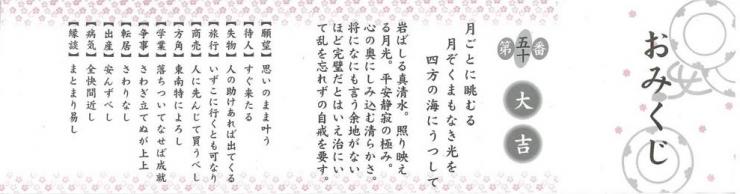 おみくじ
第五十番
大吉
月ごとに眺むる
月ぞくまもなき光を
四方の海にうつして
岩ばしる真清水。照り映え
る月光。平安静寂の極み。
心の奥にしみ込む清らかさ。
将になにも言う余地がない
ほど完璧だとはいえ治にい
て乱を忘れずの自戒を要す。
【願望】思いのまま叶う
【待人】すぐ来たる
【失物】人の助けあれば出てくる
【旅行】いずこに行くとも可なり
【商売】人に先んじて買うべし
【方角】東南特によろし
【学業】落ちついてなせば成就
【争事】さわぎ立てぬが上々
【転居】さわりなし
【出産】安んずべし
【病気】全快間近し
【縁談】まとまり易し